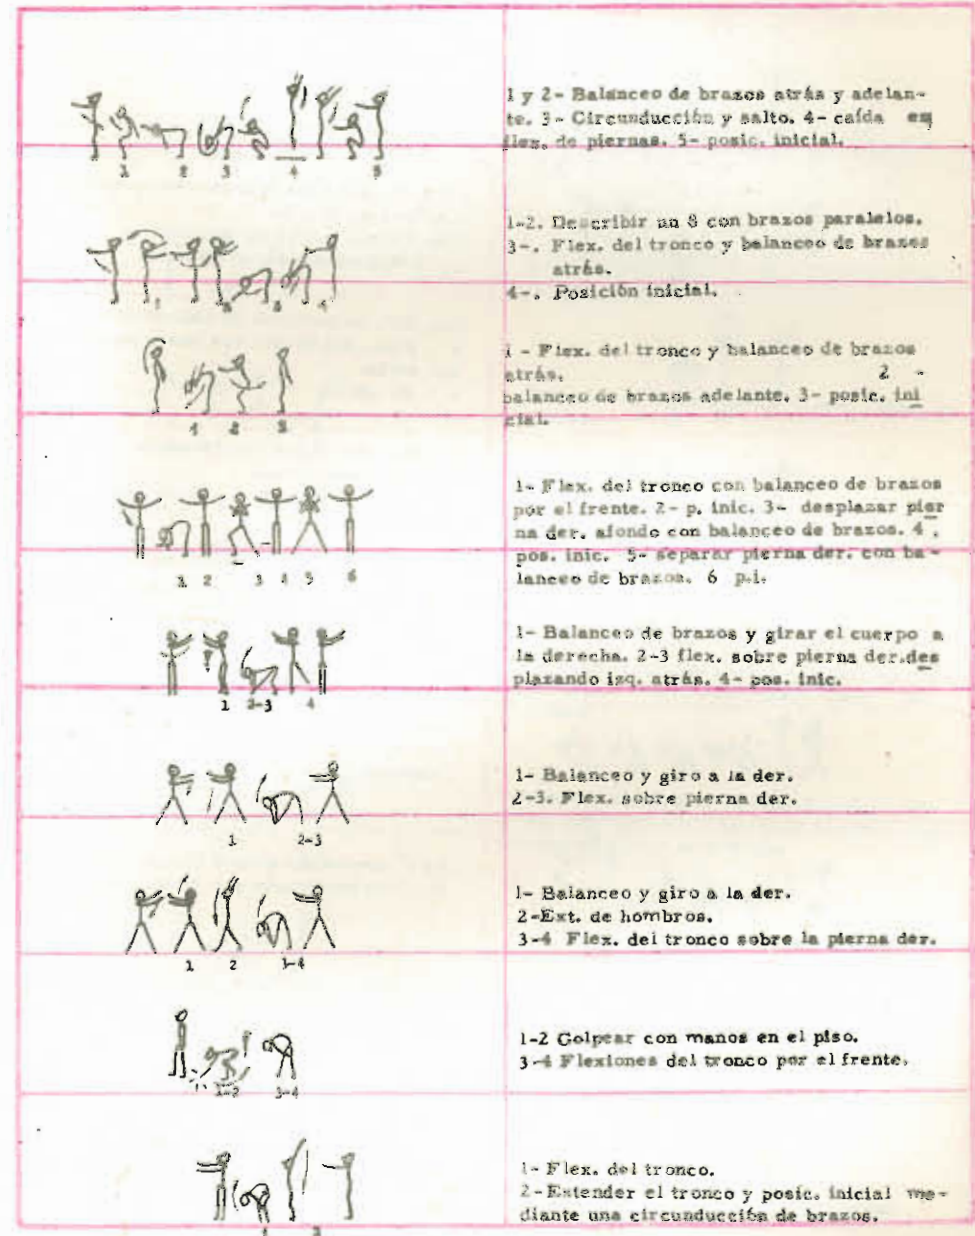 1 y 2- Balanceo de brazos atrás y adelan-
te. 3- Circunducción y salto. 4- caída en
flex. de piernas. 5- posic. inicial.
1 2 3 4 5
1-2. Describir un 8 con brazos paralelos.
3-. Flex. del tronco y balanceo de brazos
atrás.
4-. Posición inicial.
1 - Flex. del tronco y balanceo de brazos
atrás. 2 -
balanceo de brazos adelante. 3- posic. ini
cial.
1 2 3
1- Flex. del tronco con balanceo de brazos
por el frente. 2- p. inic. 3- desplazar pier
na der. afondo con balanceo de brazos. 4.
pos. inic. 5- separar pierna der. con ba-
lanceo de brazos. 6 p.i.
1 2 3 4 5 6
1- Balanceo de brazos y girar el cuerpo a
la derecha. 2-3 flex. sobre pierna der.des
plazando izq. atrás. 4- pos. inic.
1 2-3 4
1- Balanceo y giro a la der.
2-3. Flex. sobre pierna der.
1 2-3
1- Balanceo y giro a la der.
2-Ext. de hombros.
3-4 Flex. del tronco sobre la pierna der.
1 2 3-4
1-2 Golpear con manos en el piso.
3-4 Flexiones del tronco por el frente.
1-2 3-4
1- Flex. del tronco.
2-Extender el tronco y posic. inicial me-
diante una circunducción de brazos.